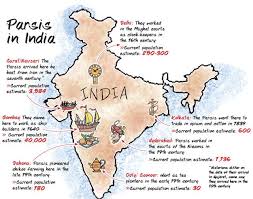 Parsis
in India
Delhi: They worked
in the Mughal courts
as
in the 16th century
Current population
estimate: 250-300
Surat/Navsari: The
Parsis arrived here by
boat from Iran in the
seventh century*
Current population
estimate: 3,584
INDIA
Bombay: They came
here to work, as ship
builders in 1640
Current population
estimate: 40,000
Kolkata: The Parsis went there to
trade in opium and settler in 1839
Current population
estimate: 600
Hyderabad: Parsis worked
in the courts of the Nizam
in the 19th century
Current population
estimate: 1,136
Dahanu: Parsis pioneered
chikoo farming here in the
late 19th century
Current population
estimate: 780
Ooty/ Coonoor: Went as tea
planters in the early 19th century
Current population
estimate: 30
*Historians differ on
the date of their arrival
in Gujarat, some say
they arrived here in the